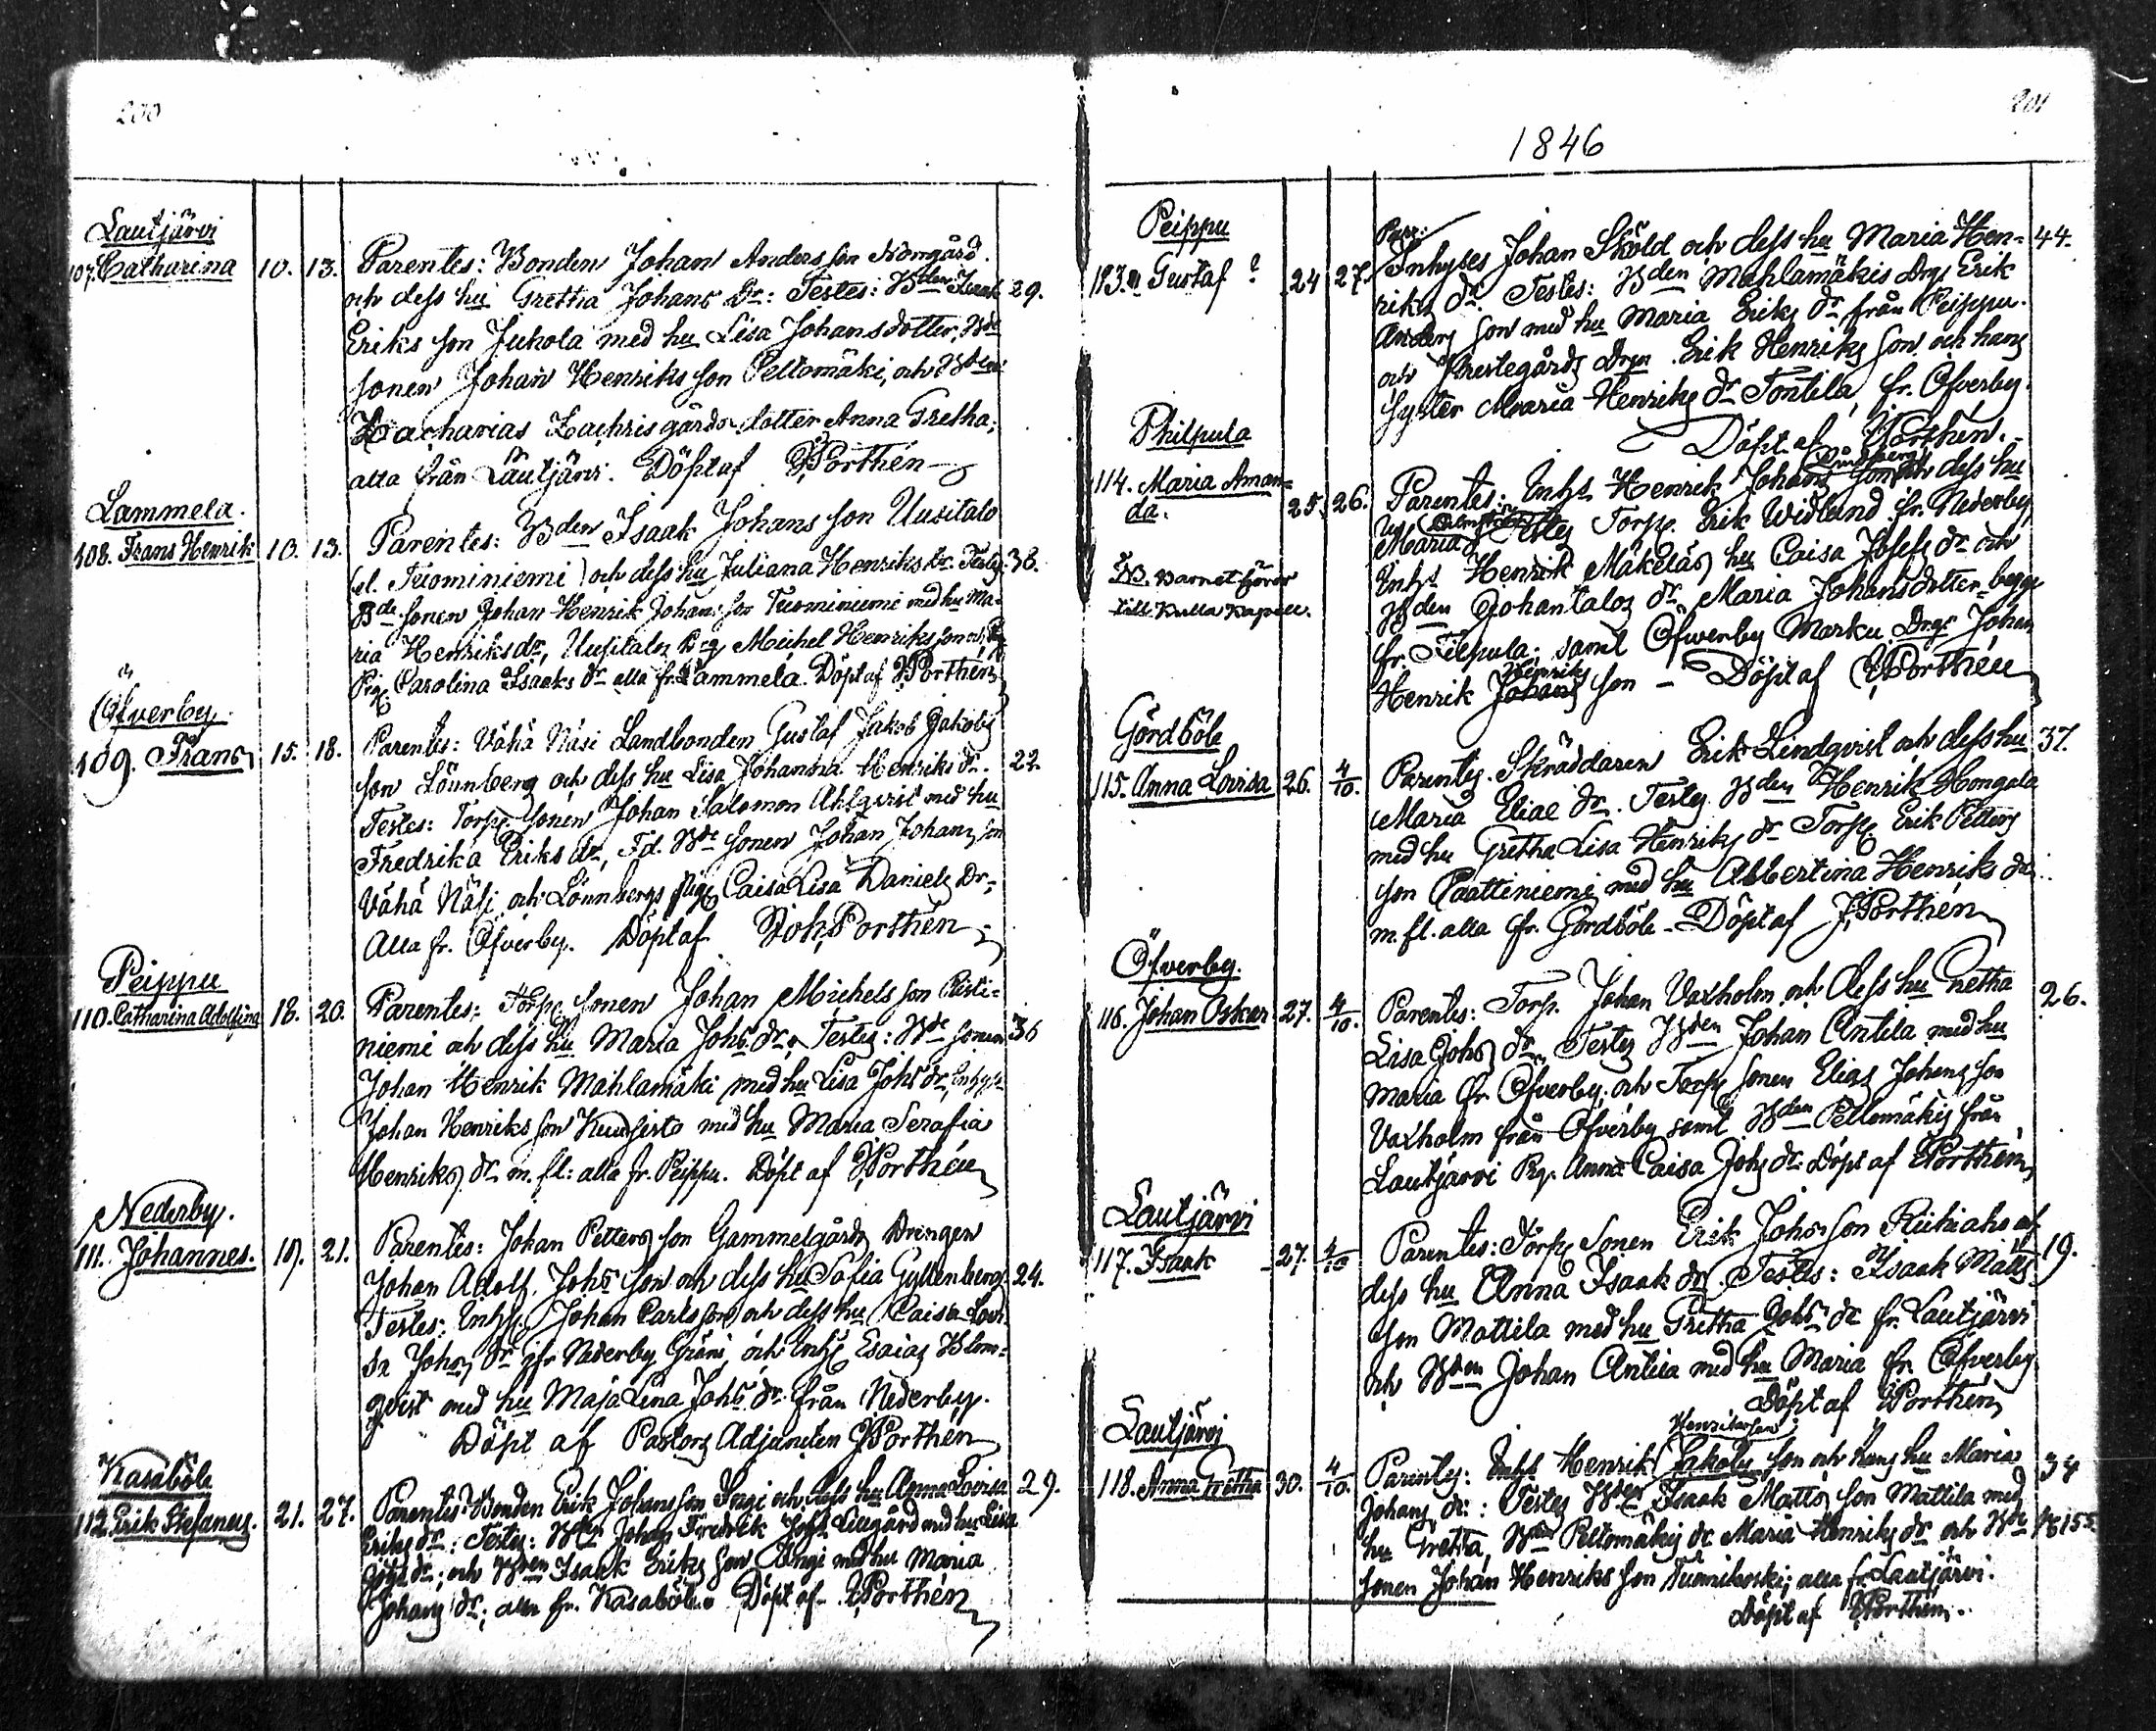 200
Lautjärvi
107. Catharina 10. 13. Parentes: Bonden Johan Anders son Norrgård.
och dess hu Gretha Johans dr: Testes: Bden Isaak 29.
Eriks son Juhola med hu Lisa Johansdotter, Bde
sonen Johan Henriks son Peltomäki, och Bden
Zacharias Zachrisgårds dotter Anna Gretha;
alla från Lautjärvi. Döpt af Porthén
Lammela.
108. Frans Henrik 10. 13. Parentes: Bden Isaak Johans son Uusitalo
(el. Tuominiemi) och dess hu Juliana Henriks dr. Testes 38.
Bde sonen Johan Henrik Johans son Tuominiemi med hu Ma-
ria Henriks dr, Uusitalos Drg Michel Henriks son och
Pig. Carolina Isaaks dr alla fr. Lammela. Döpt af Porthén
Öfverby.
109. Frans 15. 18. Parentes: Vähä Näsi Landbonden Gustaf Jakob Jakobs
son Lönnberg och dess hu Lisa Johanna Henriks dr. 22
Testes: Torp. sonen Johan Salomon Ahlqvist med hu
Fredrika Eriks dr, Fd. Bde sonen Johan Johans son
Vähä Näsi och Lönnbergs pig. Caisa Lisa Daniels dr;
Alla fr. Öfverby. Döpt af Joh. Porthén
Peippu
110. Catharina Adolfina 18. 20. Parentes: Torp. sonen Johan Michels son Risti-
niemi och dess hu Maria Johs dr, Testes: Bde sonen 36
Johan Henrik Mahlamäki med hu Lisa Johs dr, Inhys.
Johan Henriks son Kuusisto med hu Maria Serafia
Henriks dr m. fl: alla fr. Peippu. Döpt af Porthén
Nederby.
111. Johannes. 19. 21. Parentes: Johan Petters son Gammelgårds Drengen
Johan Adolf Johs son och dess hu Sofia Gyllenberg 24.
Testes: Inhys. Johan Carls son och dess hu Caisa Lovi-
sa Johs dr fr Nederby och Inhys. Esaias Blom-
qvist med hu Maja Lina Johs dr. från Nederby.
Döpt af Pastors Adjuncten Porthén
Kasaböle
112. Erik Stefanus. 21. 27. Parentes: Bonden Erik Johans son och dess hu Anna Lovisa 29.
Eriks dr: Testes: Bden Johan Fredrik Johs Lillgård med hu Lisa
dr; och Bden Isaak Eriks son Ängi med hu Maria
Johans dr; alla fr. Kasaböle. Döpt af Porthén
201
1846
Peippu
113. Gustaf 24 27. Parr:
Inhyses Johan Sköld och dess hu Maria Hen- 44.
riks dr Testes: Bden Mahlamäkis Drg Erik
Anders son med hu Maria Eriks dr från Peippu.
och Prestegårds Drgn Erik Henriks son och hans
syster Maria Henriks dr Tontila, fr. Öfverby.
Döpt af Porthén.
Philpula
114. Maria Aman-
da. 25. 26. Parentes: Inhs Henrik Johans son och dess hu
Maria Testes Torp. Erik Widlund fr. Nederby,
Inhs Henrik Mäkeläs hu Caisa Josefs dr och
Bden Johantalos dr Maria Johansdotter begge
fr. Filpula; samt Öfverby Marku Drgr Johan
Henriks
Henrik Johans son - Döpt af Porthén
NB. Barnet hörer
till Kulla Kapell.
Gördböle
115. Anna Lovisa 26. 4/10. Parentes. Skräddaren Erik Lindqvist och dess hu 37.
Maria Eliae dr. Testes Bden Henrik Hongala
med hu Gretha Lisa Henriks dr Torp. Erik Petters
son Paattiniemi med hu Albertina Henriks dr
m. fl. alla fr. Gördböle - Döpt af Porthén
Öfverby.
116. Johan Oskar 27. 4/10. Parentes: Torp. Johan Vaxholm och dess hu Gretha 26.
Lisa Johs dr Testes Bden Johan Antila med hu
Maria fr. Öfverby, och Torp sonen Elias Johans son
Vaxholm från Öfverby samt Bden Peltomäkis från
Lautjärvi Pig. Anna Caisa Johs dr. Döpt af Porthén
Lautjärvi
117. Isaak 27. 4/10 Parentes: Torp. sonen Erik Johs son och
dess hu Anna Isaaks dr. Testes: Isaak Matts 19.
son Mattila med hu Gretha Johs dr fr. Lautjärvi
och Bden Johan Antila med hu Maria fr. Öfverby
Döpt af Porthén
Lautjärvi
118. Anna Gretha 30. 4/10. Henriksson
Parentes: Inhs Henrik Jakobs son och hans hu Maria 34
Johans dr: Testes Bden Isaak Matts son Mattila med
hu Gretha, Bden Peltomäkis dr Maria Henriks dr och Bde 155.
sonen Johan Henriks son Tuomikoski; alla fr. Lautjärvi.
Döpt af Porthén.